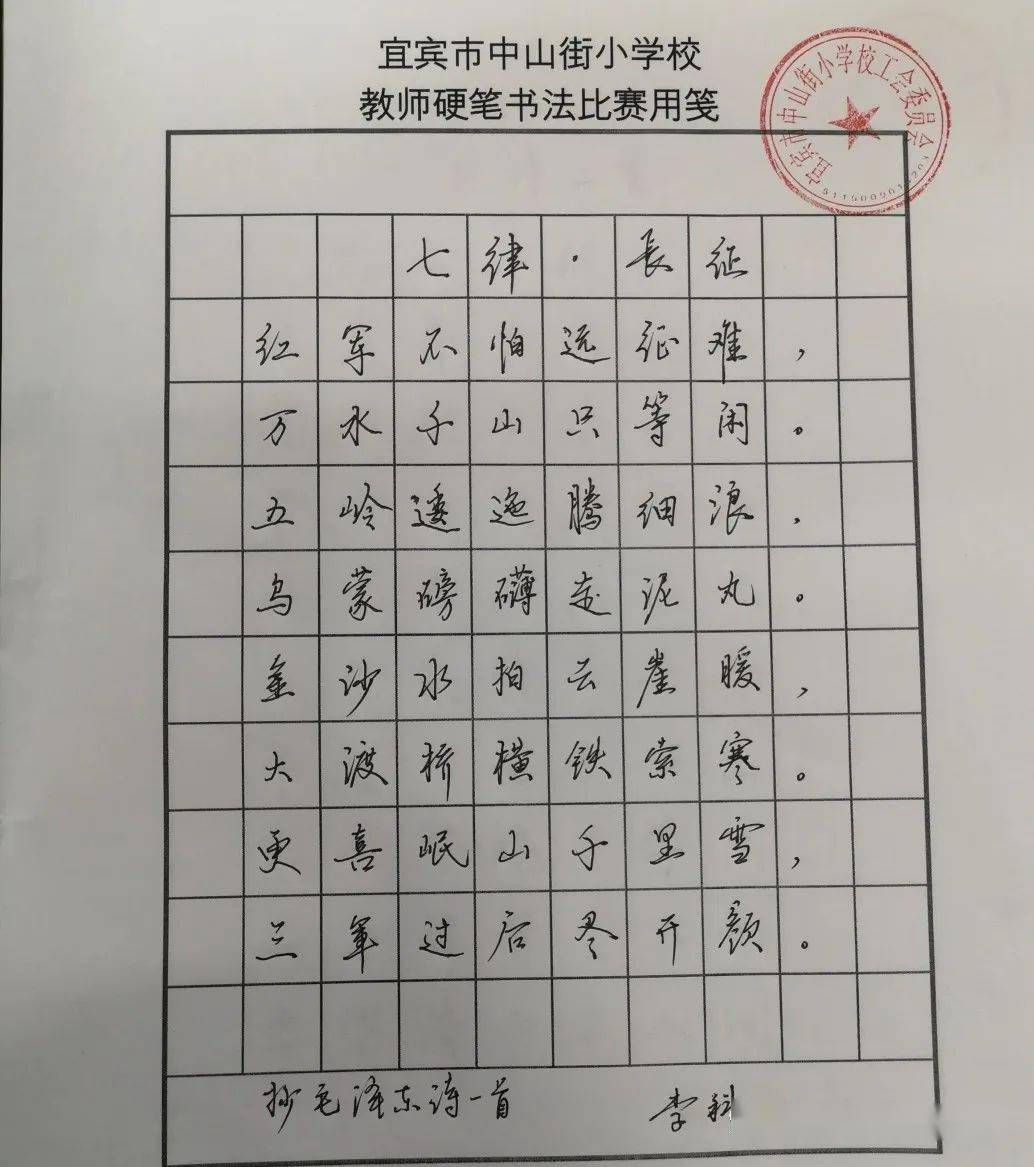 宜宾市中山街小学校
教师硬笔书法比赛用笺
宜宾市中山街小学校工会委员会
七律·長征
红军不怕远征难，
万水千山只等闲。
五岭逶迤腾细浪，
乌蒙磅礴走泥丸。
金沙水拍云崖暖，
大渡桥横铁索寒。
更喜岷山千里雪，
三军过后尽开颜。
抄毛泽东诗一首 李科